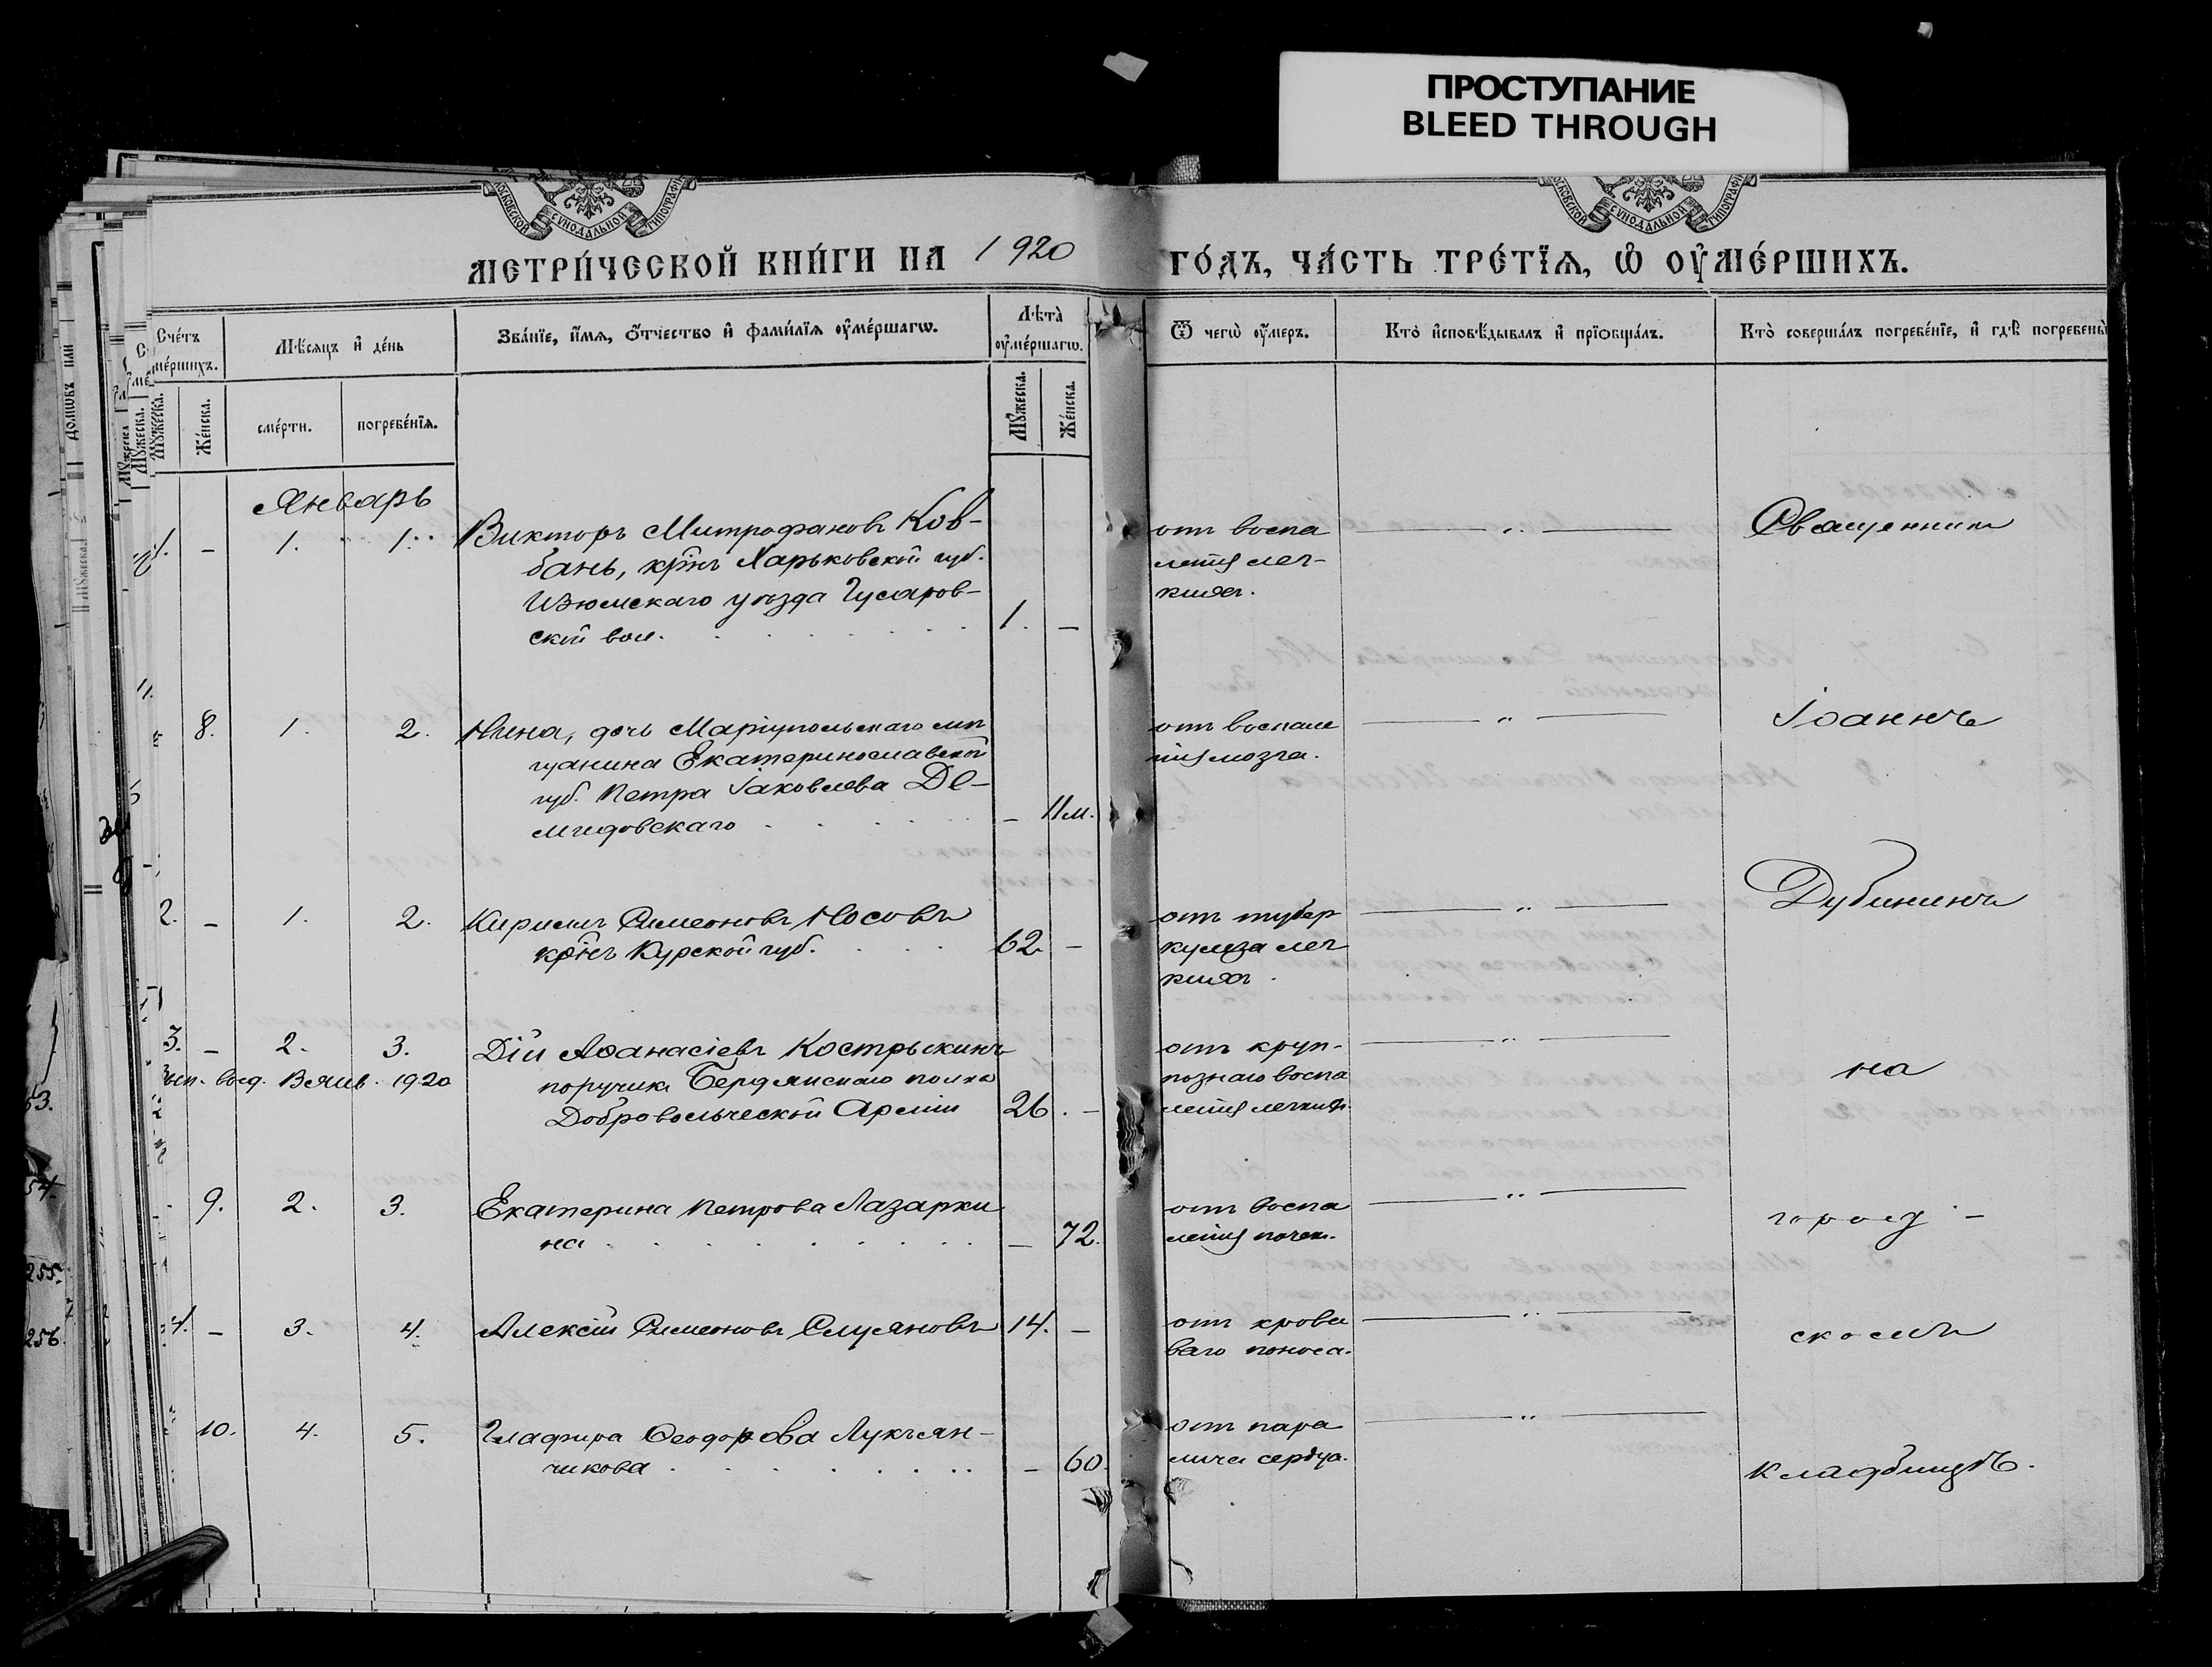 ПРОСТУПАНИЕ
BLEED THROUGH
МОСКОВСКОЙ СУНОДАЛЬНОЙ ТИПОГРАФІИ
МЕТРИ́ЧЕСКОЙ КНИ́ГИ НА 1920 ГО́ДЪ, ЧА́СТЬ ТРЕ́ТЇѦ, Ѡ ОУ҆МЕ́РШИХЪ.
Сче́тъ оумершихъ.
Мѣ́сяцъ и҆ де́нь
Зва́нїе, и҆́мѧ, ѻ҆́тчество и҆ фами́лїѧ оу҆ме́ршагѡ.
Лѣта̀ оу҆ме́ршагѡ.
Ѿ чегѡ̀ оу҆́меръ.
Кто̀ и҆сповѣ́дывалъ и҆ прїѡбща́лъ.
Кто̀ соверша́лъ погребе́нїе, и҆ гдѣ̀ погребены̀
Мꙋжеска.
Же́нска.
сме́рти.
погребе́нїѧ.
Мꙋжеска.
Же́нска.
Январь
1. – 1. 1. Викторъ Митрофановъ Ков-
бань, крнъ Харьковской губ.
Изюмскаго уѣзда Гусаров-
ской вол. 1. –
отъ воспа
ленія лег-
кихъ.
Священник
8. 1. 2. Нина, дочь Маріупольскаго мѣ
щанина Екатеринославской
губ. Петра Іаковлева Де-
мидовскаго – 11 м.
отъ воспале
нія мозга.
Іоаннъ
2. – 1. 2. Кириллъ Симеоновъ Носовъ
крнъ Курской губ. 62 –
отъ тубер
кулеза лег
кихъ.
Дубининъ
3. – 2. 3. Дій Аѳанасіевъ Кострыкинъ
1920
поручикъ Бердянскаго полка
Добровольческой Арміи 26. –
отъ круп-
познаго воспа
ленія легкихъ.
на
9. 2. 3. Екатерина Петрова Лазарки
на – 72.
отъ воспа
ленія почек.
город –
4. – 3. 4. Алексій Симеоновъ Слуяновъ 14. –
отъ крова
ваго поноса.
скомъ
10. 4. 5. Глафира Ѳеодорова Лукьян-
чикова – 60.
отъ пара
лича сердца.
кладбищѣ.
53.
54.
255.
256.